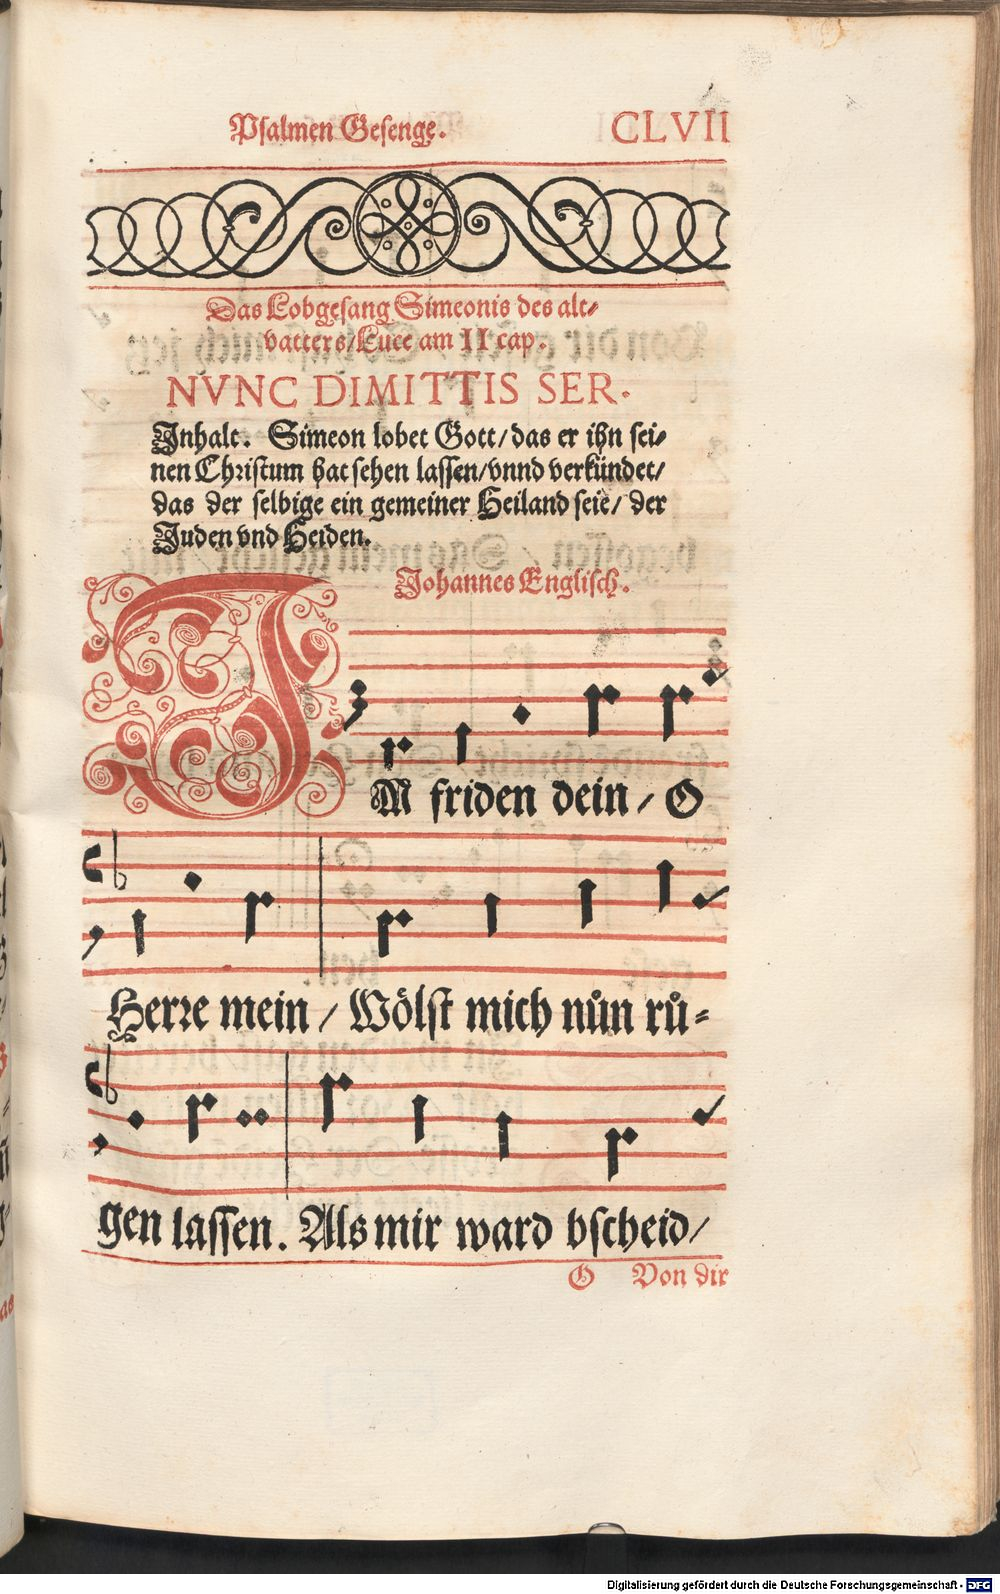 Psalmen Gesenge. CLVII
Das Lobgesang Simeonis des alt⸗
vatters/Luce am II cap.
NVNC DIMITTIS SER.
Inhalt. Simeon lobet Gott/das er ihn sei⸗
nen Christum hat sehen lassen/vnnd verkündet/
das der selbige ein gemeiner Heiland seie/ der
Juden vnd Heiden.
Johannes Englisch.
IM friden dein/ O
Herre mein / Wölst mich nůn rů⸗
gen lassen. Als mir ward bscheid/
O Von dir
Digitalisierung gefördert durch die Deutsche Forschungsgemeinschaft - DFG